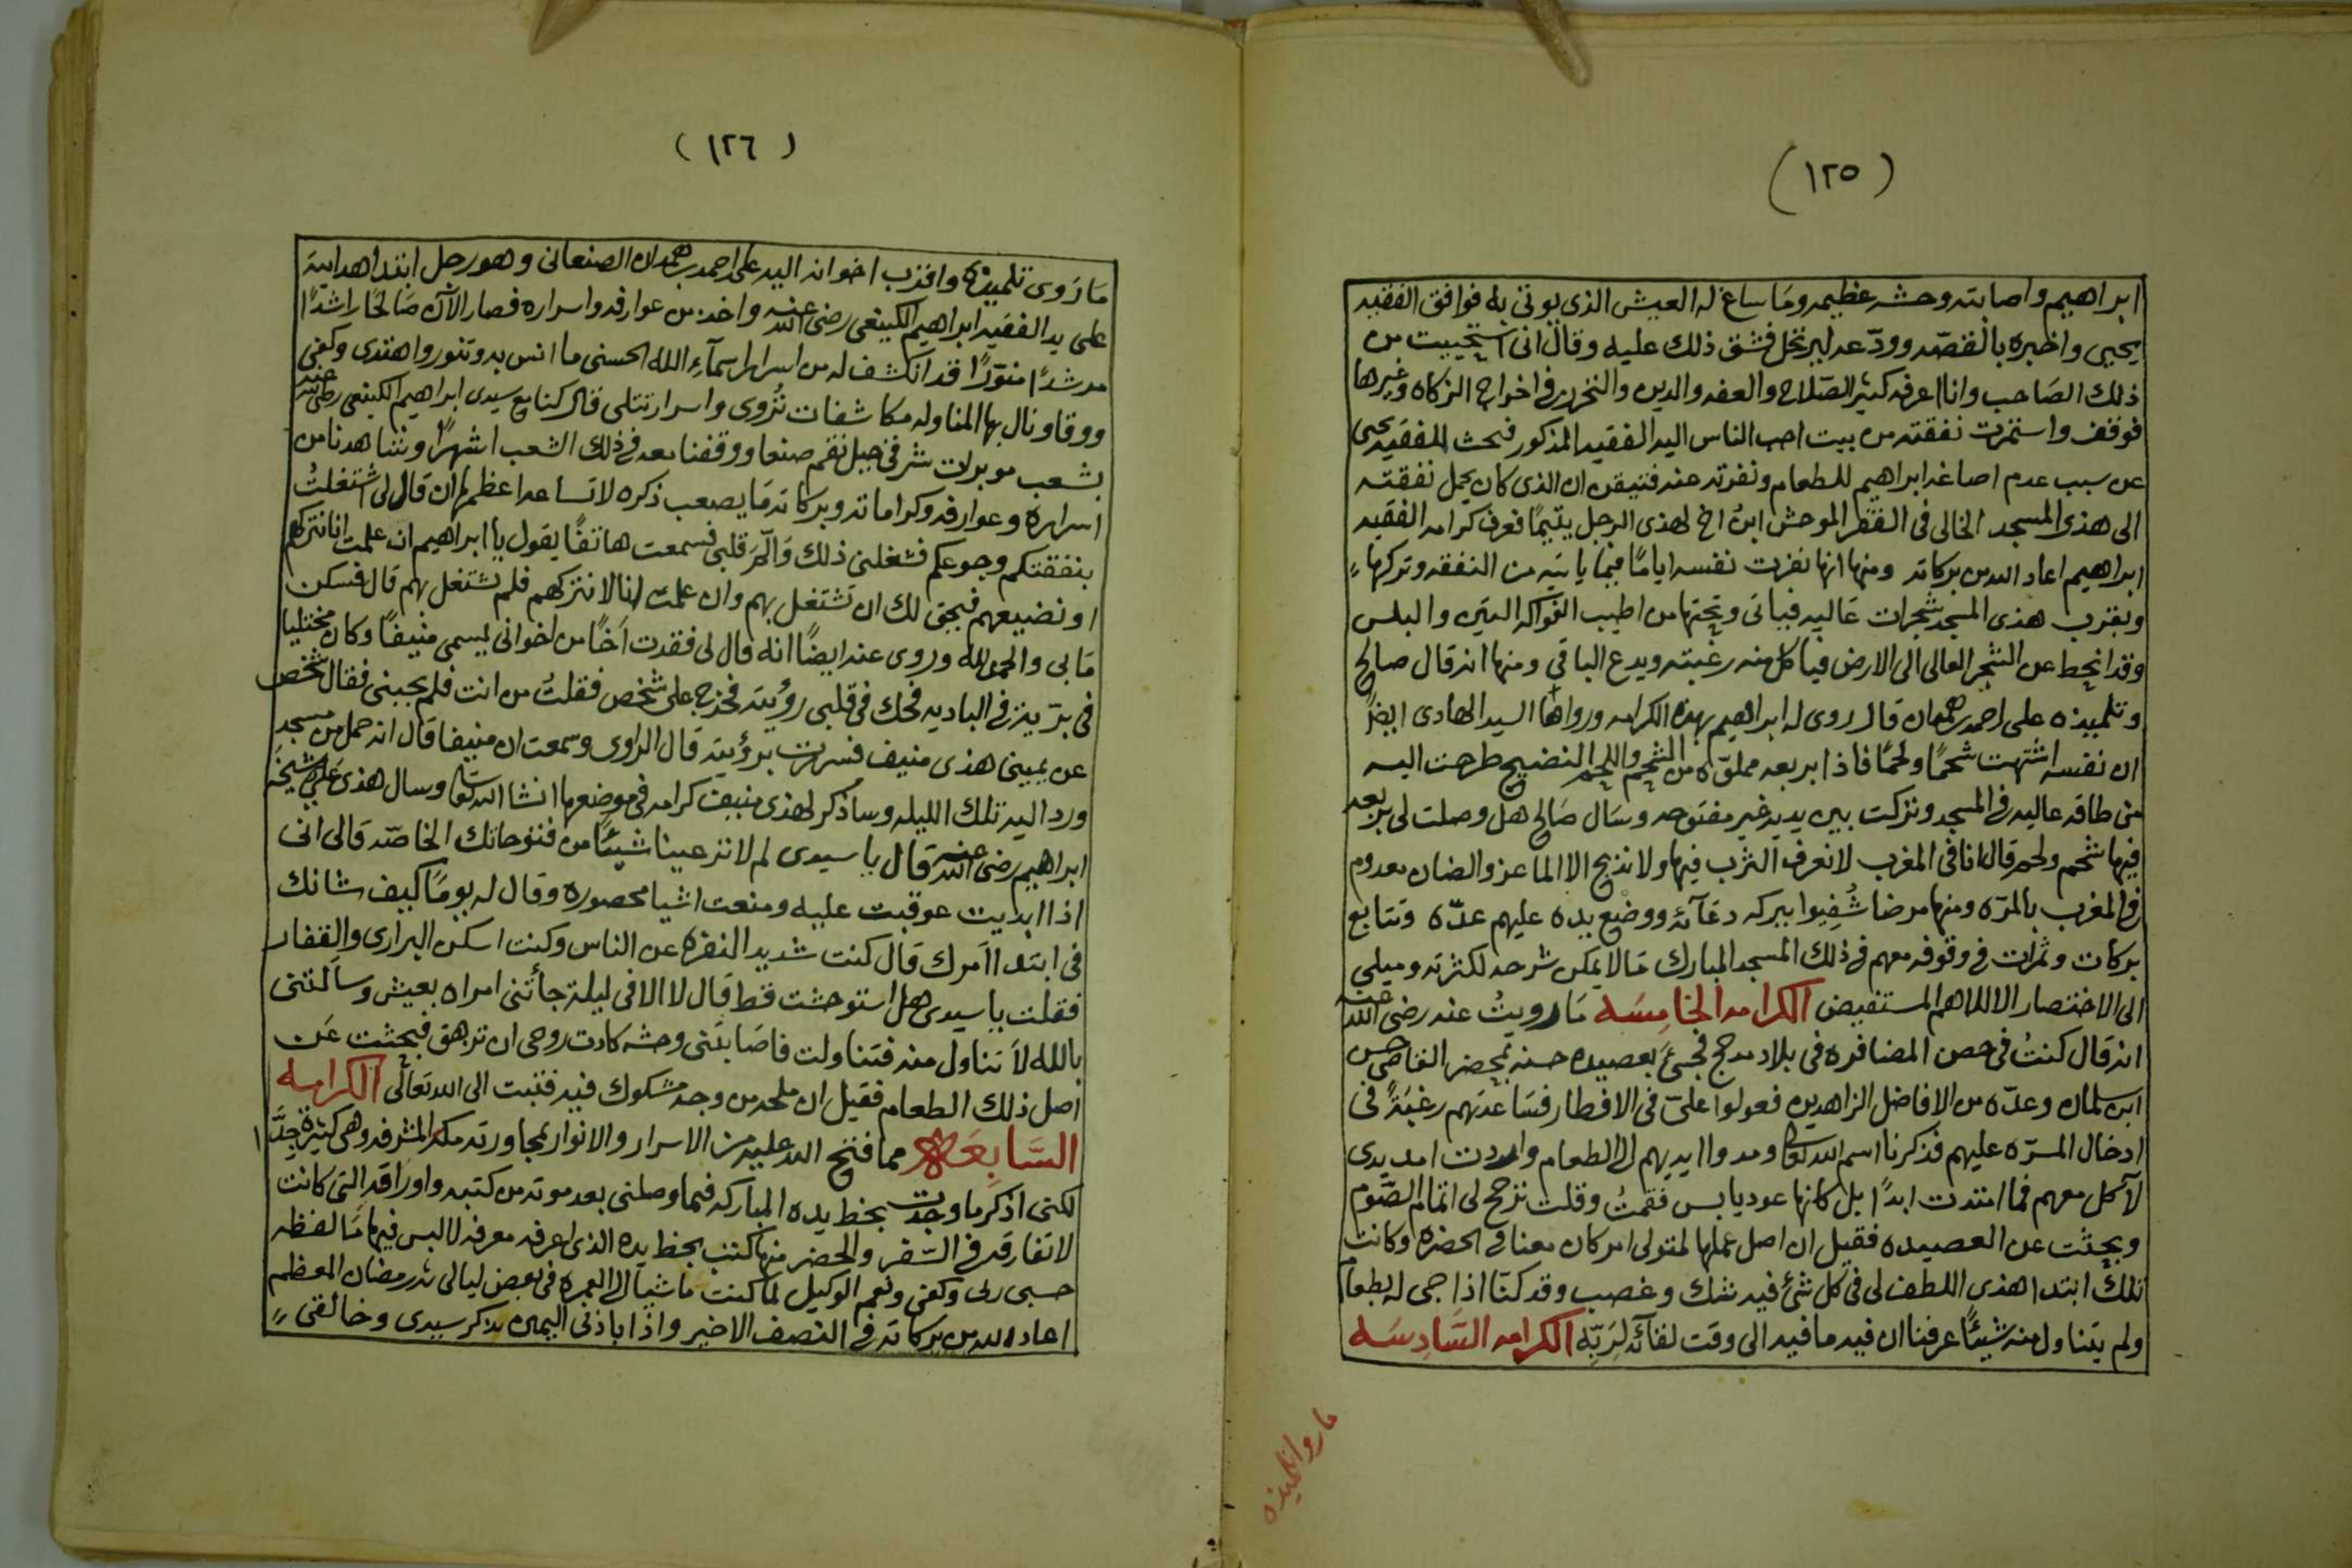 (١٢٥)
ابراهيم واصابته وحشه عظيمه وما ساغ له العيش الذى يوتى به فوافق الفقيه
يحيى واخبره بالقصه وودّعه ليرتحل فشق ذلك عليه وقال انى استحييت من
ذلك الصاحب وانا اعرفه كثير الصّلاح والعفه والدين والتحرر فى اخراج الزكاه وغيرها
فوقف واستمرت نفقته من بيت احب الناس اليه الفقيه المذكور فبحث الفقيه يحيى
عن سبب عدم اصاغه ابراهيم للطعام ونفرته عنه فتيقن ان الذى كان يحمل نفقته
الى هذى المسجد الخالى فى القفر الموحش ابنُ اخ لهذى الرجل يتيمًا فعرف كرامه الفقيه
ابراهيم اعاد الله من بركاته ومنها انها نفرت نفسه ايامًا فيما ياتيه من النفقه وتركها
وبقرب هذى المسجد شجرات عاليه فياتى وتحتها من اطيب الفواكه التين والبلس
وقد انحط عن الشجر العالى الى الارض فياكل منه رغبته ويدع الباقى ومنها انه قال صالح
وتلميذه على احمد بن همدان قال روى له ابراهيم بهذه الكرامه ورواها السيد الهادى ايضًا
ان نفسه اشتهت شحمًا ولحمًا فاذا بربعه مملوّه من الشحم واللحم النضيج طرحت اليه
من طاقه عاليه فى المسجد وتركت بين يديه غير مفتوحه وسال صالح هل وصلت لى بربعه
فيها شحم ولحم قال انا فى المغرب لا نعرف الثرب فيها ولا نذبح الا الماعز والضان معدوم
فى المغرب بالمرّه ومنها مرضا شُفِيوا ببركه دعائه ووضع يده عليهم عدّه وتتابع
بركات وثمرات فى وقوفه معهم فى ذلك المسجد المبارك ما لا يمكن شرحه لكثرته وميلى
الى الاختصار الا للاهم المستفيض الكرامه الخامِسَه مَا رويتُ عنه رضى الله عنه
انه قال كنتُ فى حصن المضافره فى بلاد مدحج فجىءَ بعصيده حسنه بمحضر القاضى حسن
ابن سلمان وعدّه من الافاضل الزاهدين فعولوا علىّ فى الافطار فساعدتهم رغبَةً فى
ادخال المسرّه عليهم فذكرنا اسم الله تعالى ومدوا ايديهم الى الطعام واردت امد يدى
لآكل معهم فما امتدت ابدًا بل كانها عود يابس فقمتُ وقلت ترجح لى اتمام الصّوم
وبحثت عن العصيده فقيل ان اصل عملها لمتولى امر كان معنا فى الحضره وكانت
تلك ابتدا هذى اللطف لى فى كل شئ فيه شك وغصب وقد كنّا اذا جى له بطعام
ولم يتناول منه شيئًا عرفنا ان فيه ما فيه الى وقت لقائه لِرَبِّه الكرامه السَّادِسَه
ما روا تلميذه
(١٢٦)
مَا رَوى تلميذه واقرب اخوانه اليه على احمد بن همدان الصنعانى وهو رجل ابتدا هدايته
على يد الفقيه ابراهيم الكينعى رضى الله عنه واخذ من عوارفه واسراره فصار الآن صَالحًا راشدًا
مرشدًا منوّرًا قد انكشف له من اسرار اسمآءِ الله الحسنى ما انس به وتنور واهتدى وكفى
ووقا ونال بها المنا وله مكاشفات تُرْوى واسرار تتلى قال كنا مع سيدى ابراهيم الكينعى رضى الله عنه
بشعب موبرات شرقى جبل نقم صنعا ووقفنا معه فى ذلك الشعب اشهرًا وشاهدنا من
اسراره وعوارفه وكراماته وبركاته مَا يصعب ذكره لا تساعد اعظمها ان قال لى اشتغلتُ
بنفقتكم وجوعكم فشغلنى ذلك وَالّمَ قلبى فسمعت هاتفًا يقول يا ابراهيم ان علمت انا نتركهم
او نضيعهم فيحق لك ان تشتغل بهم وان علمت انا لا نتركهم فلم تشتغل بهم قال فسكن
مَا بى والحمد لله وروى عنه ايضًا انه قال لى فقدت اَخًا من اخوانى يسمى منيفًا وكان مختليا
فى برّيته فى الباديه فحك فى قلبى رؤيته فخرج على شخص فقلتُ من انت فلم يجبنى فقال شخص
عن يمينى هذى منيف فسررت برؤيته قال الراوى وسمعت ان منيفا قال انه حمل من مسجد
ورد اليه تلك الليله وساذكر لهذى منيف كرامه فى موضعها انشا الله تعالى وسال هذى على شيخه
ابراهيم رضى الله عنه قال يا سيدى لم لا تر عيينا شيئًا من فتوحاتك الخاصّه قال انى
اذا ابديت عوقبت عليه ومنعت اشيا محصوره وقال له يومًا كيف شانك
فى ابتدا اَمرك قال كنت شديد النفره عن الناس وكنت اسكن البرارى والقفار
فقلت يا سيدى هل استوحشت قط قال لا الا فى ليلة جأتنى امراه بعيش وسألتنى
بالله لاَ تناول منه فتناولت فاصَابتنى وحشه كادت روحى ان تزهق فبحثت عَن
اصل ذلك الطعام فقيل ان ملحه من وجه مشكوك فيه فتبت الى الله تعالى الكرامه
السَّابِعَه مما فتح الله عليه من الاسرار والانوار بمجاورته مكه المشرفه وهى كثيرة جِدًّا
لكنى اذكر ما وجدت بخط يده المباركه فيما وصلنى بعد موته من كتبه واوراقه التى كانت
لا تفارقه فى السّفر والحضر منها كتب بخط يده الذى اعرفه معرفه لا لبس فيها مَا لفظه
حسبى ربى وكفى ونعم الوكيل لما كنت ماشيًا الى العمره فى بعض ليالى شهر رمضان المعظم
اعاد الله من بركاته فى النصف الاخير واذا باذنى اليمين تذكر سيدى وخالقى